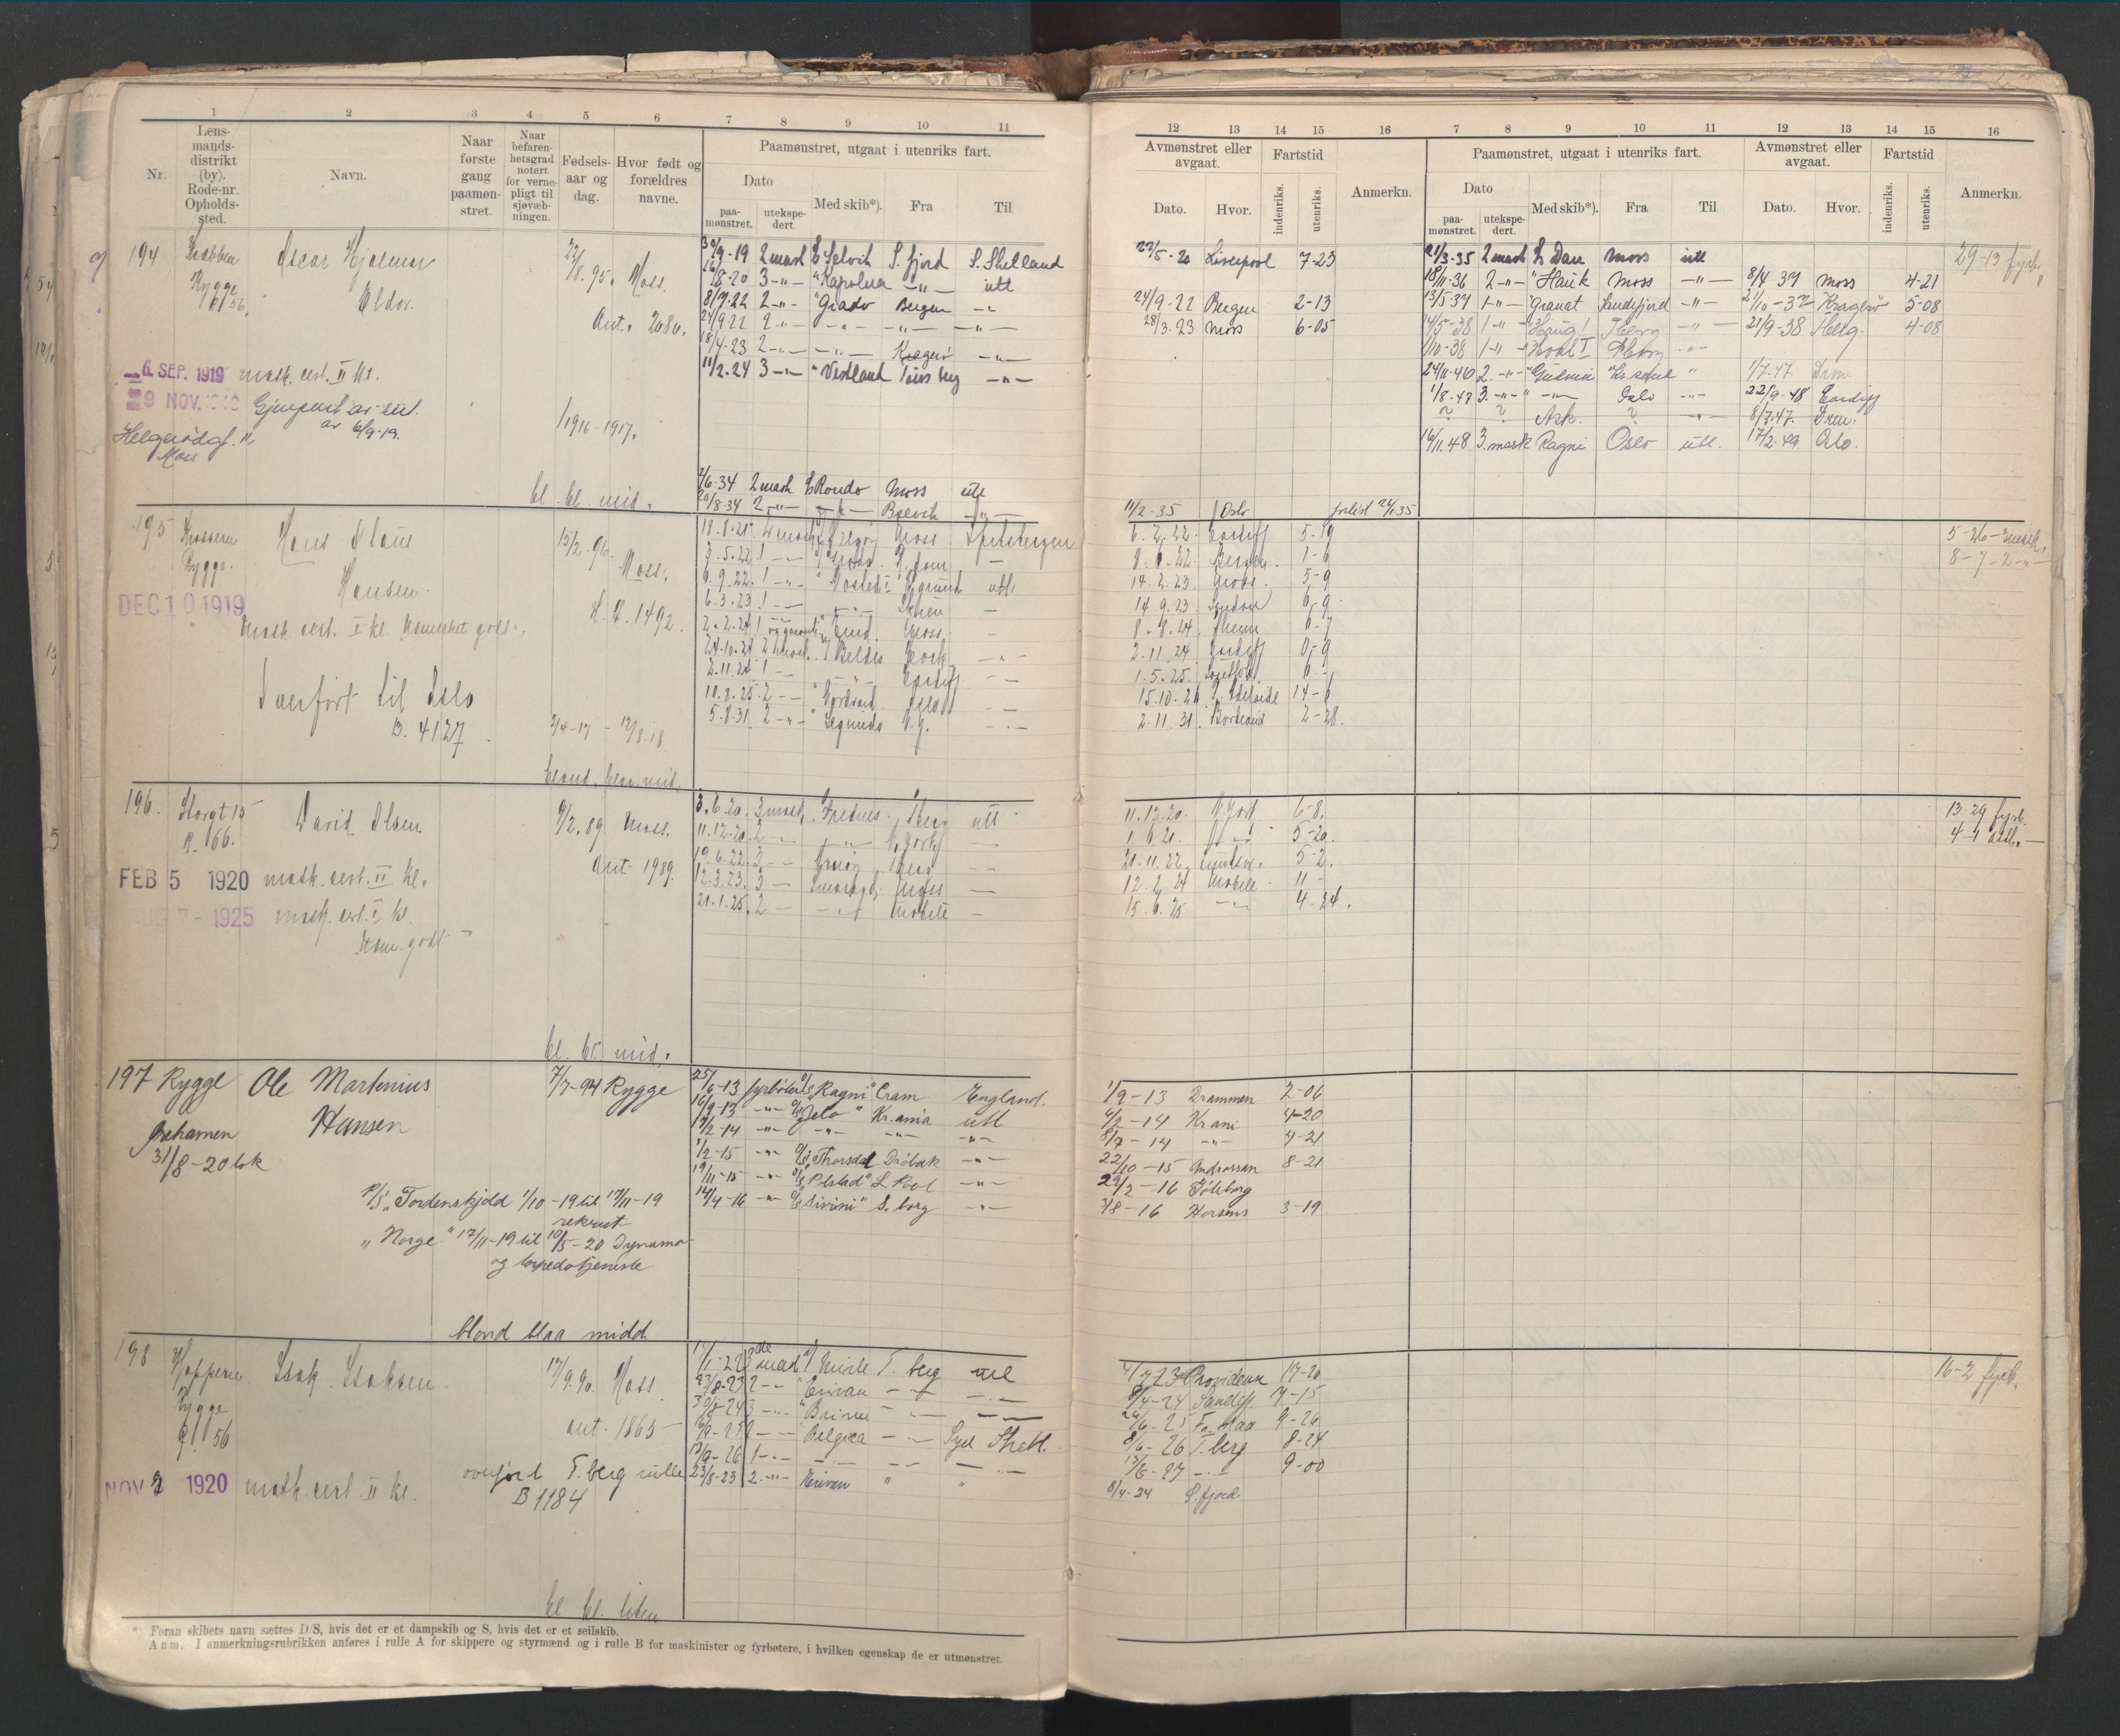 1 2 3 4 5 6 7 8 9 10 11
Nr.
Lens-
mands-
distrikt
(by).
Rode-nr.
Opholds-
sted.
Navn.
Naar
første
gang
paamøn-
stret.
Naar
befaren-
hetsgrad
notert
for verne-
pligt til
sjøvæb-
ningen.
Fødsels-
aar og
dag.
Hvor født og
forældres
navne.
Paamønstret, utgaat i utenriks fart.
Dato
paa-
mønstret.
utekspe-
dert.
Med skib*).
Fra
Til
194 Krabben Oscar Hjalmar 22/8.95. Moss.
Rygge Eldor.
56. Ant. 2080.
6. SEP. 1919 mask. cert. II kl.
9 NOV. 1919 Gjenpart av cert.
av 6/9-19.
Helgerødgt. 11
Moss
1/1916-1917.
bl. bl. mid.
30/9-19 2 mask Selvik S.fjord S. Shetland
3-"- "Kapolna -"- utl
8/7-22 2-"- "Grado Bergen -"-
24/9 22 2-"- -"- -"- -"-
18/4-23 2-"- -"- Kragerø -"-
11/2-24 3-"- "Vestland Tønsberg -"-
2/6-34 2 mask Rondo Moss utl
20/8-34 2-"- -"- Brevik -"-
195 Krossern Hans Olaus 15/2-96.
Rygge. Hansen. Moss.
DEC 10 1919 H. F. 1492.
Mask. cert. I kl. utmerket godt.
Overført til Oslo
B. 4127
2/4-17 - 17/8 18
blond. blaa. mid.
18.8.21 Moss Spitsbergen
6.9.22. 1 -"- utl
6.3.23 1 -"- Skien
2.2.24 1 Moss
24.10.24 2 mask. Cork -"-
2.11.24 1 -"- Cardiff
10.8.25 2 -"-
5.8.31 2 -"- "Segundo
196. Storgt 15 David Olsen 9/2.89 Moss.
R. 166. Ant 1989.
FEB 5 1920 mask. cert. II kl.
AUG 7 - 1925 mask. cert. I kl.
Utm. godt
bl. bl. mid.
3.6.20. 3 mask. Frednes. Tberg utl
11.12.20. 2 -"- N. York
19.6.22. 3 -"- Tberg
12.3.23. 3 -"- Smaragd. Moss
21.1.25. 2 -"- -"- Mobile
197 Rygge Ole Martinius 7/7-94 Rygge
Hansen
31/8-20 lok
P/S "Tordenskjold 1/10-19 til 17/11-19
rekrut
"Norge" 17/11-19 til 10/5-20 Dynamo-
og torpedotjeneste
blond blaa midd
25/6-13 fyrbøter "Ragni" Cram England.
16/9-13 -"- "Jelø" Kr.ania utl
12/2-14 -"- -"- -"- -"-
1/2-15 -"- "Thorsdal Drøbak -"-
19/11-15 -"- "Polstad" L. Pool -"-
14/4-16 -"- "Sirini" S. borg -"-
198 Hoppern Isak Isaksen. 17/9.90. Moss
Rygge
R. 56 ant. 1865
NOV 2 1920 mask. cert. II kl.
overført T.berg rulle
B 1184
bl. bl. liten
17/1-22 3de mask T. berg utl
23/8-23 2-"- "Erivan -"- -"-
30/8-24 3-"- -"- -"-
6/9-25 2-"- "Belgica -"- Syd Shetl.
13/9-26 1-"- -"- -"- -"-
23/8-23 2.-"- Eriven " "
*) Foran skibets navn sættes D/S, hvis det er et dampskib og S, hvis det er et seilskib.
Anm. I anmerkningsrubrikken anføres i rulle A for skippere og styrmænd og i rulle B for maskinister og fyrbøtere, i hvilken egenskap de er utmønstret.
12 13 14 15 16 7 8 9 10 11 12 13 14 15 16
Avmønstret eller
avgaat.
Dato. Hvor.
Fartstid
indenriks. utenriks.
Anmerkn.
Paamønstret, utgaat i utenriks fart.
Dato
paa-
mønstret.
utekspe-
dert.
Med skib*). Fra Til
Avmønstret eller
avgaat.
Dato. Hvor.
Fartstid
indenriks. utenriks.
Anmerkn.
23/5-20 Liverpool 7-23
24/9-22 Bergen 2-13
28/3-23 Moss 6-05
11/2-35 Oslo forlist 24/1 35
21/3-35 2 mask Dan Moss utl 29-13 fyrb.
18/11-36 2-"- "Hauk Moss -"- 8/4 37 Moss 4-21
13/5 37 1-"- "Granat Sandefjord -"- 21/10-37 Kragerø 5-08
14/5-38 1-"- "Haug I Tberg -"- 21/9-38 Helg. 4-08
1/10-38 1-"- "Hval I Tberg -"-
24/11-46 2.-"- "Gudrun Kr.sand " 1/7-47 Drm.
1/8-47 3.-"- " -"- Oslo -"- 22/9-48 Cardiff
? ? Ask. ? -"- 8/7.47. Drm.
16/11.48 3.mask Ragni Oslo utl. 17/2-49 Oslo.
6.2.22. Cardiff 5-19 5-26-3mask.
8.6.22 Bergen. 1-6 8-7-2-"-
14.2.23 Moss. 5-9
14.9.23 London 6-9
8.8.24 Skien 6-7
2.11.24 Cardiff 0-9
1.5.25.
15.10.26 P. Adelaide 14-6
2.11.31. Bordeaux 2-28.
11.12.20. N.York 6-8. 13-29 fyrb.
1.6.21. -"- 5-20. 4-1
21.11.22. 5-2.
12.2.24 Mobile 11-
15.6.25 -"- 4-24.
1/9-13 Drammen 2-06
6/2-14 Kr.ani 4-20
8/7-14 -"- 4-21
22/10-15 Androssan 8-21
29/2-16 Gøteborg
3/8-16 Horsens 3-19
4/7 23 Providence 17-20 16-2 fyrb.
8/4-24 Sandef. 7-15
26/6-25 9-26
8/6-26 T.berg 8-24
13/6-27 -"- 9-00
8/4-24 S.fjord